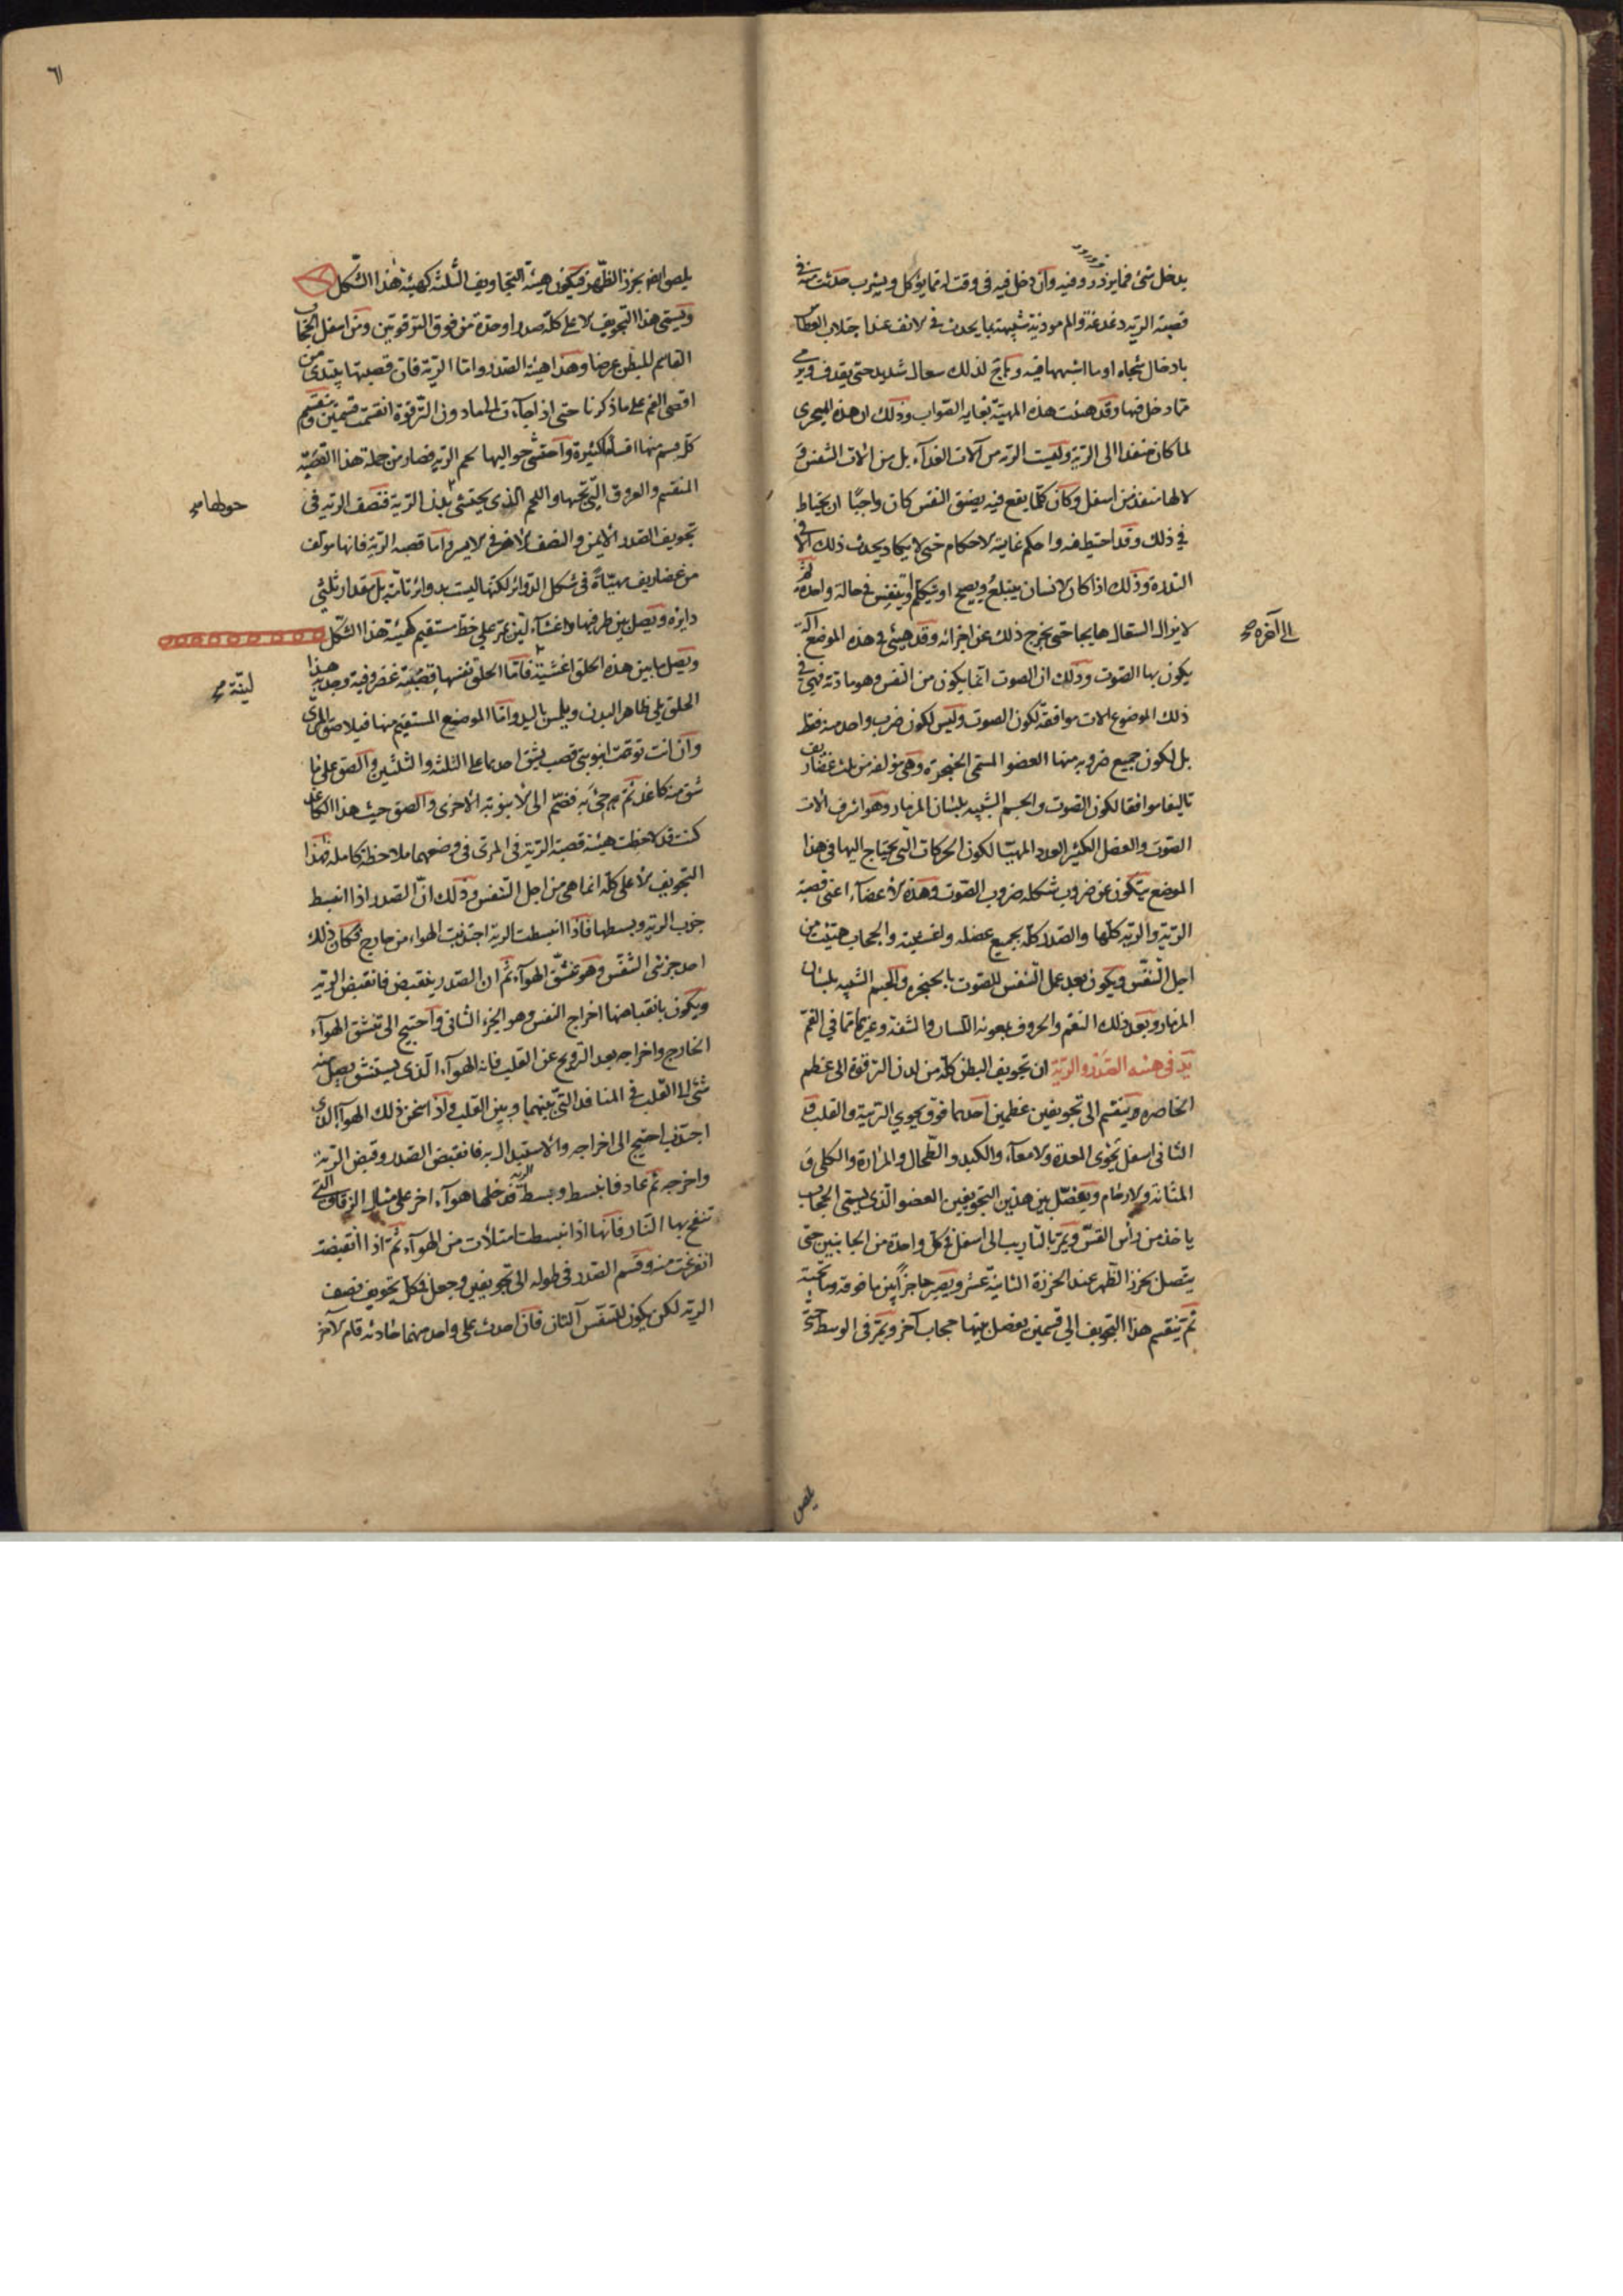 يدخل شئ فيما يزدرد فيه وان دخل فيه في وقت ما مما يؤكل ويشرب حدثت منه في
قصبة الرية دغدغة والم موذية شبيهة بما يحدث في الانف عند اجتلاب العطاس
بادخال شئ او ما اشبهها فيه ويهيج لذلك سعال شديد حتى يقذف ويرمى
ما دخل فيها وقد هيئت هذه المهيئة بغاية الصواب وذلك ان هذه المجرى
لما كان منفذا الى الرية وليست الرية من آلات الغذآء بل من الات التنفس و
لا لها منفذ من اسفل وكان كلما يقع فيه يضيق النفس كان واجبا ان يحتاط
في ذلك وقد احتيط فيه واحكم غاية الاحكام حتى لا يكاد يحدث ذلك الا في
الندرة وذلك اذا كان الانسان يبتلع ويصيح او يتكلم او يتنفس في حالة واحدة ثم
لا يزال السعال هايجا حتى يخرج ذلك عن اخرانه وقد هيئ في هذه الموضع آلة
الى آخره صح
يكون بها الصوت وذلك ان الصوت انما يكون من النفس وهو مادته فهي في
ذلك الموضوع الات موافقة لكون الصوت وليس لكون ضرب واحد منه فقط
بل لكون جميع ضروبه منها العضو المسمى الحنجرة وهي مؤلفة من ثلث غضاريف
تاليفا موافقا لكون الصوت والجسم الشبيه بلسان المزمار وهو اشرف الات
الصوت والعضل الكثير العدد المهيئا لكون الحركات التي يحتاج اليها في هذا
الموضع يتكون عن ضروب شكله ضروب الصوت وهذه الاعضآء اعنى قصبة
الرية والرية كلها والصدر كله بجميع عضله واغشيته والحجاب هيئت من
اجل التنفس ويكون بعد عمل التنفس للصوت بالحنجرة والجسم الشبيه بلسان
المزمار وبعد ذلك النغم والحروف بمعونة اللسان والشفة وغيرهما مما في الفم
يد في هيئة الصدر والرية ان تجويف البطن كله من لدن الترقوة الى عظم
الخاصرة وينقسم الى تجويفين عظمين احدهما فوق يحوي الرية والقلب و
الثاني اسفل يحوى المعدة والامعآء والكبد والطحال والمرارة والكلى و
المثانة والارحام ويفصل بين هذين التجويفين العضو الذى يسمى الحجاب
ياخذ من راس القس ويمر بالتاريب الى اسفل في كل واحدة من الجانبين حتى
يتصل بخرز الظهر عند الخرزة الثانية عشر ويصير حاجزا بين ما فوقه وما تحته
ثم ينقسم هذا التجويف الى قسمين يفصل بينها حجاب آخر ويمر في الوسط حتى
يلصق
٦١
يلصق ايضا بخرز الظهر فيكون هيئة التجاويف الثلثه كهيئة هذا الشكل
ويسمى هذا التجويف الاعلى كله صدرا وحده من فوق الترقوتين ومن اسفل الحجاب
القاسم للبطن عرضا وهذا هيئة الصدر واما الرية فان قصبتها يبتدى من
اقصى الفم على ما ذكرنا حتى اذا جآءت الى ما دون الترقوة انقسمت قسمين وينقسم
كل قسم منها اقساما كثيرة واحتشى حواليها لحم الرية فصار من جملة هذا القصبة
المنقسم والعروق التي تحتها واللحم الذى يحتشى بدن الرية فنصف الرية في
حولها صح
تجويف الصدر الايمن والنصف الاخر في الايسر واما قصبة الرية فانها مولف
من غضاريف مهيئاة في شكل الدوائر لكنها ليست بدوائر تامة بل مقدار ثلثي
دايرة ويصل بين طرفيها غشآء لين يمر على خط مستقيم كهيئة هذا الشكل
ويصل ما بين هذه الحلق اغشية فاما الحلق نفسها قصبية غضروفية وحدبة هذا
لينة صح
الحلق يلى ظاهر البدن ويلمس باليد واما الموضع المستقيم منها فيلاصق المرى
وان انت توهمت انبوبتى قصب يشق احدهما على الثلثة والثلثين والصق على ما
شق منه كاغد ثم جئ به فضم الى الانبوبة الاخرى والصق حيث هذا الكاغد
كنت قد لاحظت هيئة قصبة الرية في المرى في وضعهما ملاحظة كاملة فهذا
التجويف الاعلى كله انما هى من اجل التنفس وذلك ان الصدر اذا انبسط
جذب الرية وبسطها فاذا انبسطت الرية اجتذبت الهواء من خارج فكان ذلك
احد جزئى التنفس وهو تنشق الهوآء ثم ان الصدر ينقبض فانقبض الرية
ويكون بانقباضها اخراج النفس وهو الجزء الثانى واحتيج الى تنشق الهوآء
الخارج واخراجه بعد الترويح عن القلب فانه الهوآء الذى يستنشق يصل منه
شئ الى القلب في المنافذ التي بينهما وبين القلب واذا سخن ذلك الهوآ الذى
اجتذب احتيج الى اخراجه والاستبدال به فانقبض الصدر وقبض الرية
واخرجه ثم عاد فانبسط وبسط الرية فدخلها هوآء اخر على مثال الزقاق التى
تنفخ بها النار فانها اذا انبسطت امتلأت من الهوآء ثم اذا انقبضت
انفرغت منه وقسم الصدر في طوله الى تجويفين وجعل في كل تجويف نصف
الرية لكن يكون للتنفس آلتان فان احدث على واحد منهما حادثة قام الآخر